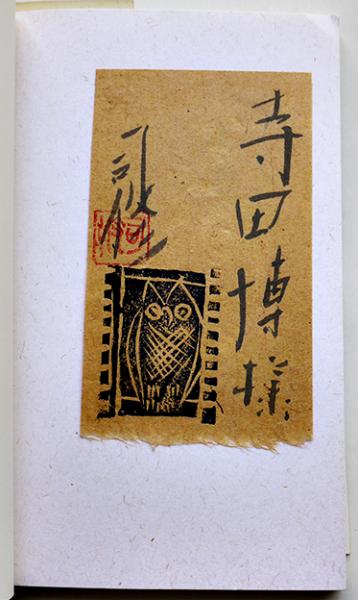 寺田博様
司修